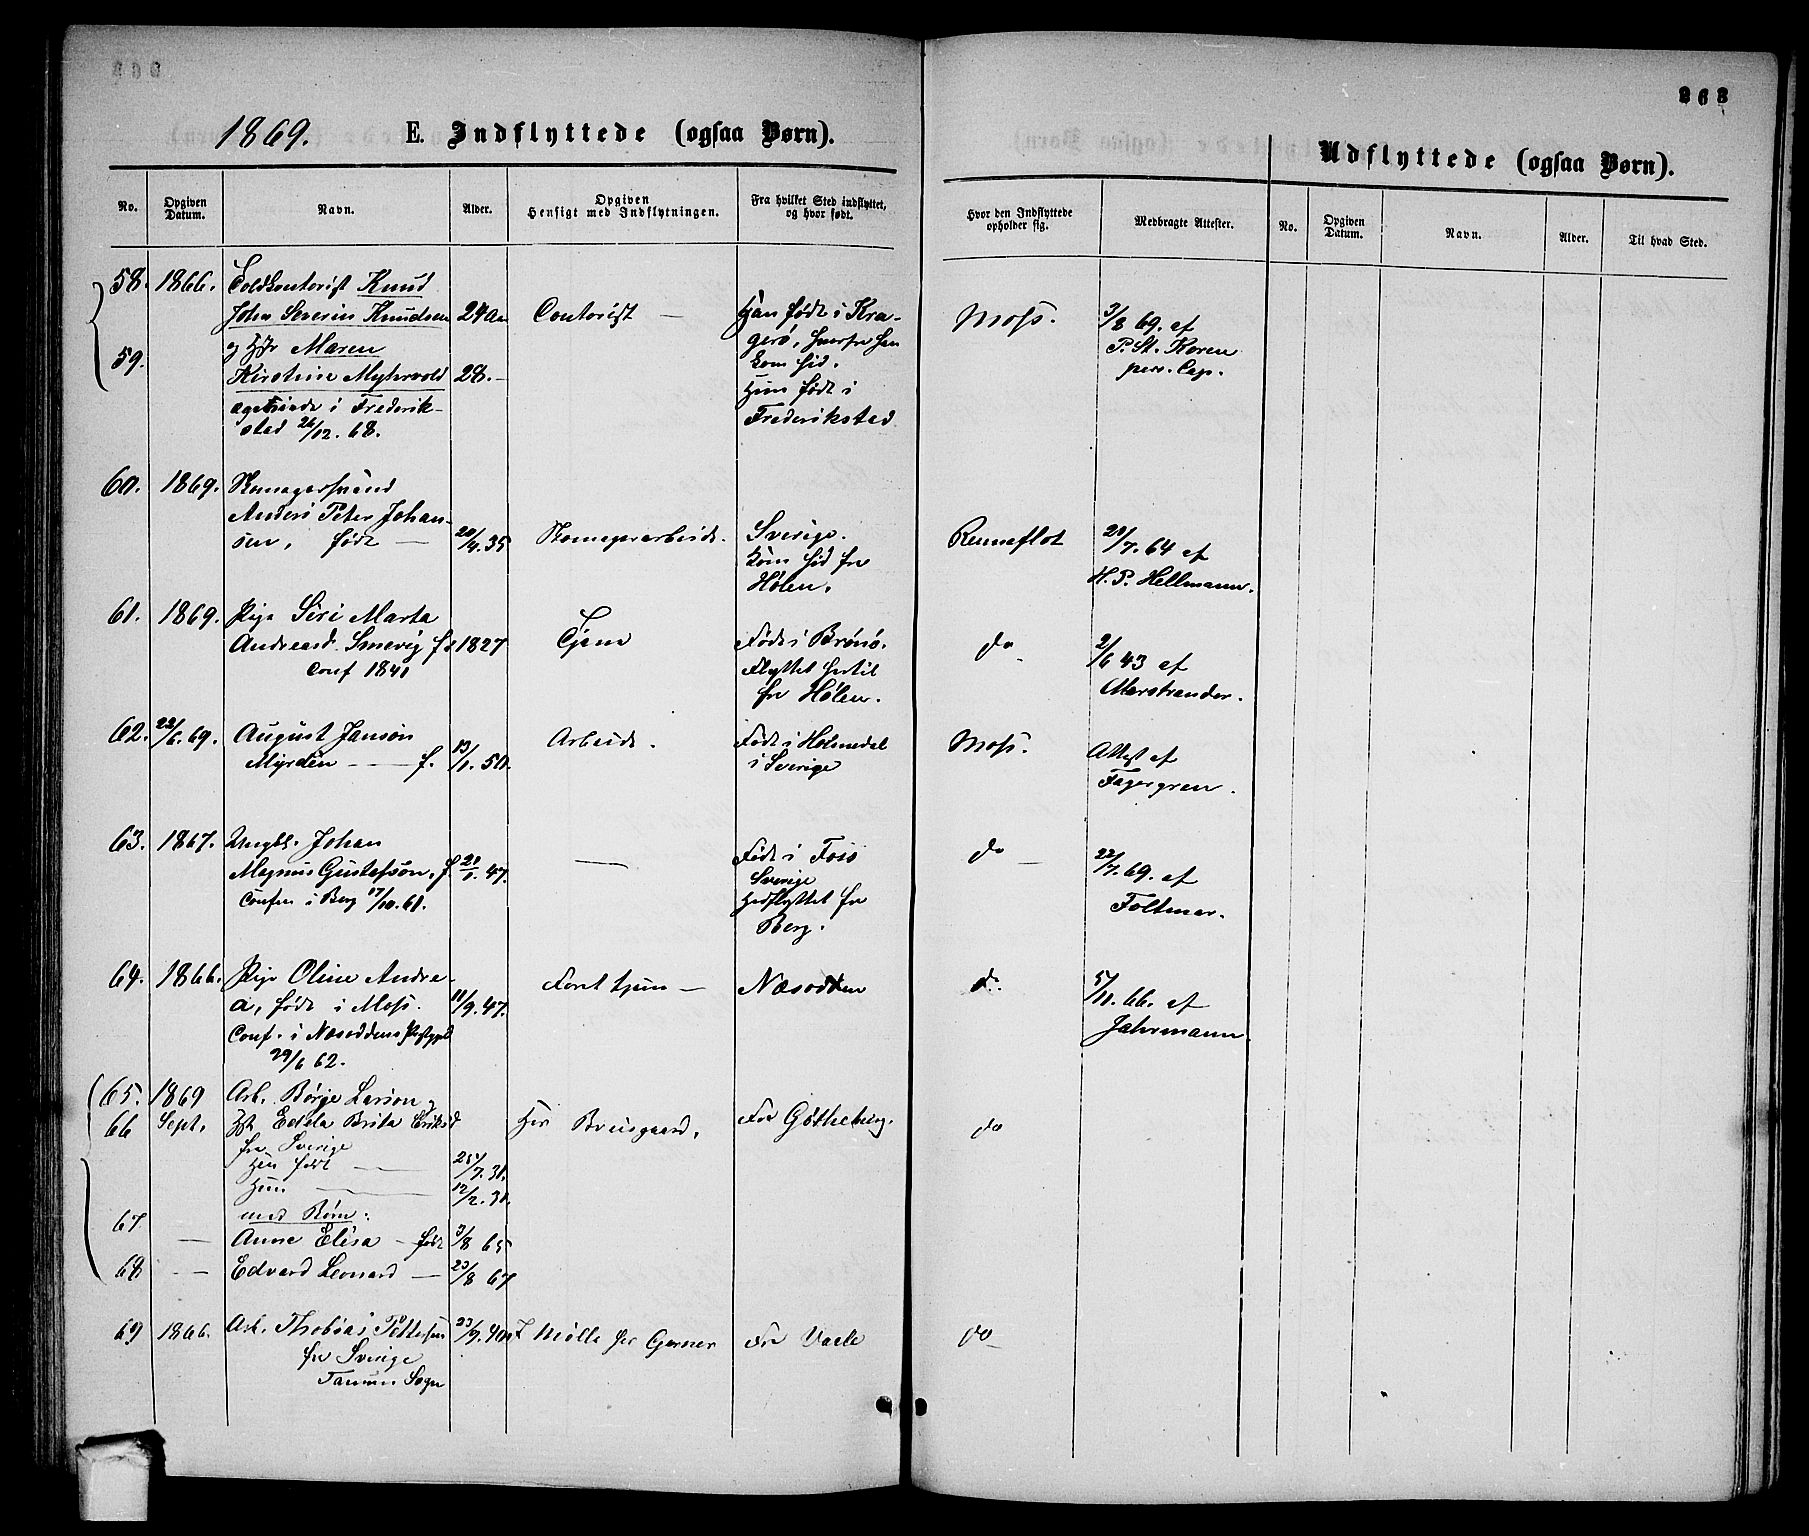 263
1869. E. Indflyttede (ogsaa Børn).
Udflyttede (ogsaa Børn).
No. Opgiven Datum. Navn. Alder. Opgiven Hensigt med Indflytningen. Fra hvilket Sted indflyttet, og hvor født. Hvor den Indflyttede opholder sig. Medbragte Attester. No. Opgiven Datum. Navn. Alder. Til hvad Sted.
58. 1866. Toldkontorist Knud
John Severin Knudsen 24 Contorist — Han født i Kra- Moss. 3/8 69. af
og Maren gerø, hvorfra han P. St. Koren
59. Kirstine Myhrvold 28. — kom hid. pers. Cap.
Hun født i
egteviede i Frederik- Frederikstad
stad 26/12. 68.
60. 1869. Skomagersvend
Anders Peter Johan- Sverige. Renneflot 20/7. 64 af
sen, født — 20/4. 35 Skomagerarbeide. Kom hid fra H. P. Hellmann.
Hølen.
61. 1869. Pige Siri Marta Tjene Født i Brønø. do 2/6 43 af
Andreasd. Smevig f. 1827 Flyttet hertil Marstrander.
Conf 1841 fra Hølen.
62. 22/6. 69. August Janson Arbeide. Født i Holmedal Moss. Attest af
Myrdén — f. 13/1. 50. i Sverige Fagergren.
63. 1867. Ungk. Johan — Født i Foss do — 22/7. 69. af
Magnus Gustafson, f. 20/1. 47. Sverige Foltmar.
Confir i Berg 17/10. 61. Hidflyttet fra
Berg.
64. 1866. Pige Oline Andre- Foret tjen — Næsodden do. 5/11. 66. af
a, født i Moss. 11/9. 47. Jahrmann.
Conf. i Næsoddens Præstegjeld
29/6 62.
65. 1869 Arb. Børje Larson og
66 Sept. Edela Brita Eriksd Hos Brusgaard. Fra Gøtheborg. do
fra Sverige
Han født — 25/7. 31.
Hun — 12/2. 31.
med Børn:
67 — Anne Elisa — født 3/8 65
68 — Edvard Leonard — 23/8 67
69 1866. Arb. Thobias Pettersen 23/9. 40 Mølle for Gerner Fra Vaale do —
fra Sverige
Tanum Sogn